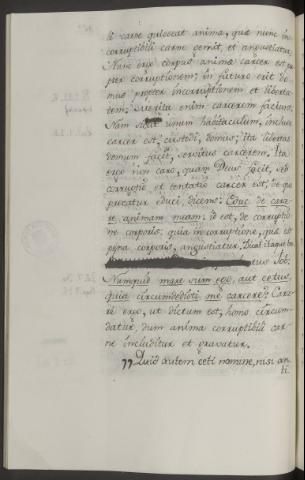 li carne quiescat anima, quæ nunc in-
corruptibili carne gemit, et angustiatur.
Nunc ergo corpus anima carcer est, prop-
ter corruptionem; in futuro erit do-
mus propter incorruptionem et liberta-
tem; servitus enim carcerem faciunt.
Nam sicut unum habitaculum, inclusis
carcer est, custodi, domus; ita libertas
domum facit, servitus carcerem. Ita
ergo non caro, quam Deus fecit, sed
corruptio, et tentatio carcer est, de quo
precatur educi, dicens: Educ de carce-
re animam meam: id est, de corruptio-
ne corporis: quia in corruptione, quæ est
pœna corporis, angustiatur. itaque
Job:
Numquid mare sum ego, aut cetus,
quia circumdedisti me carcere? Carce-
re ergo, ut dictum est, homo circum-
datur, dum anima corruptibili car-
ne includitur et gravatur.
77 Quid autem ceti nomine, nisi an-
ti-